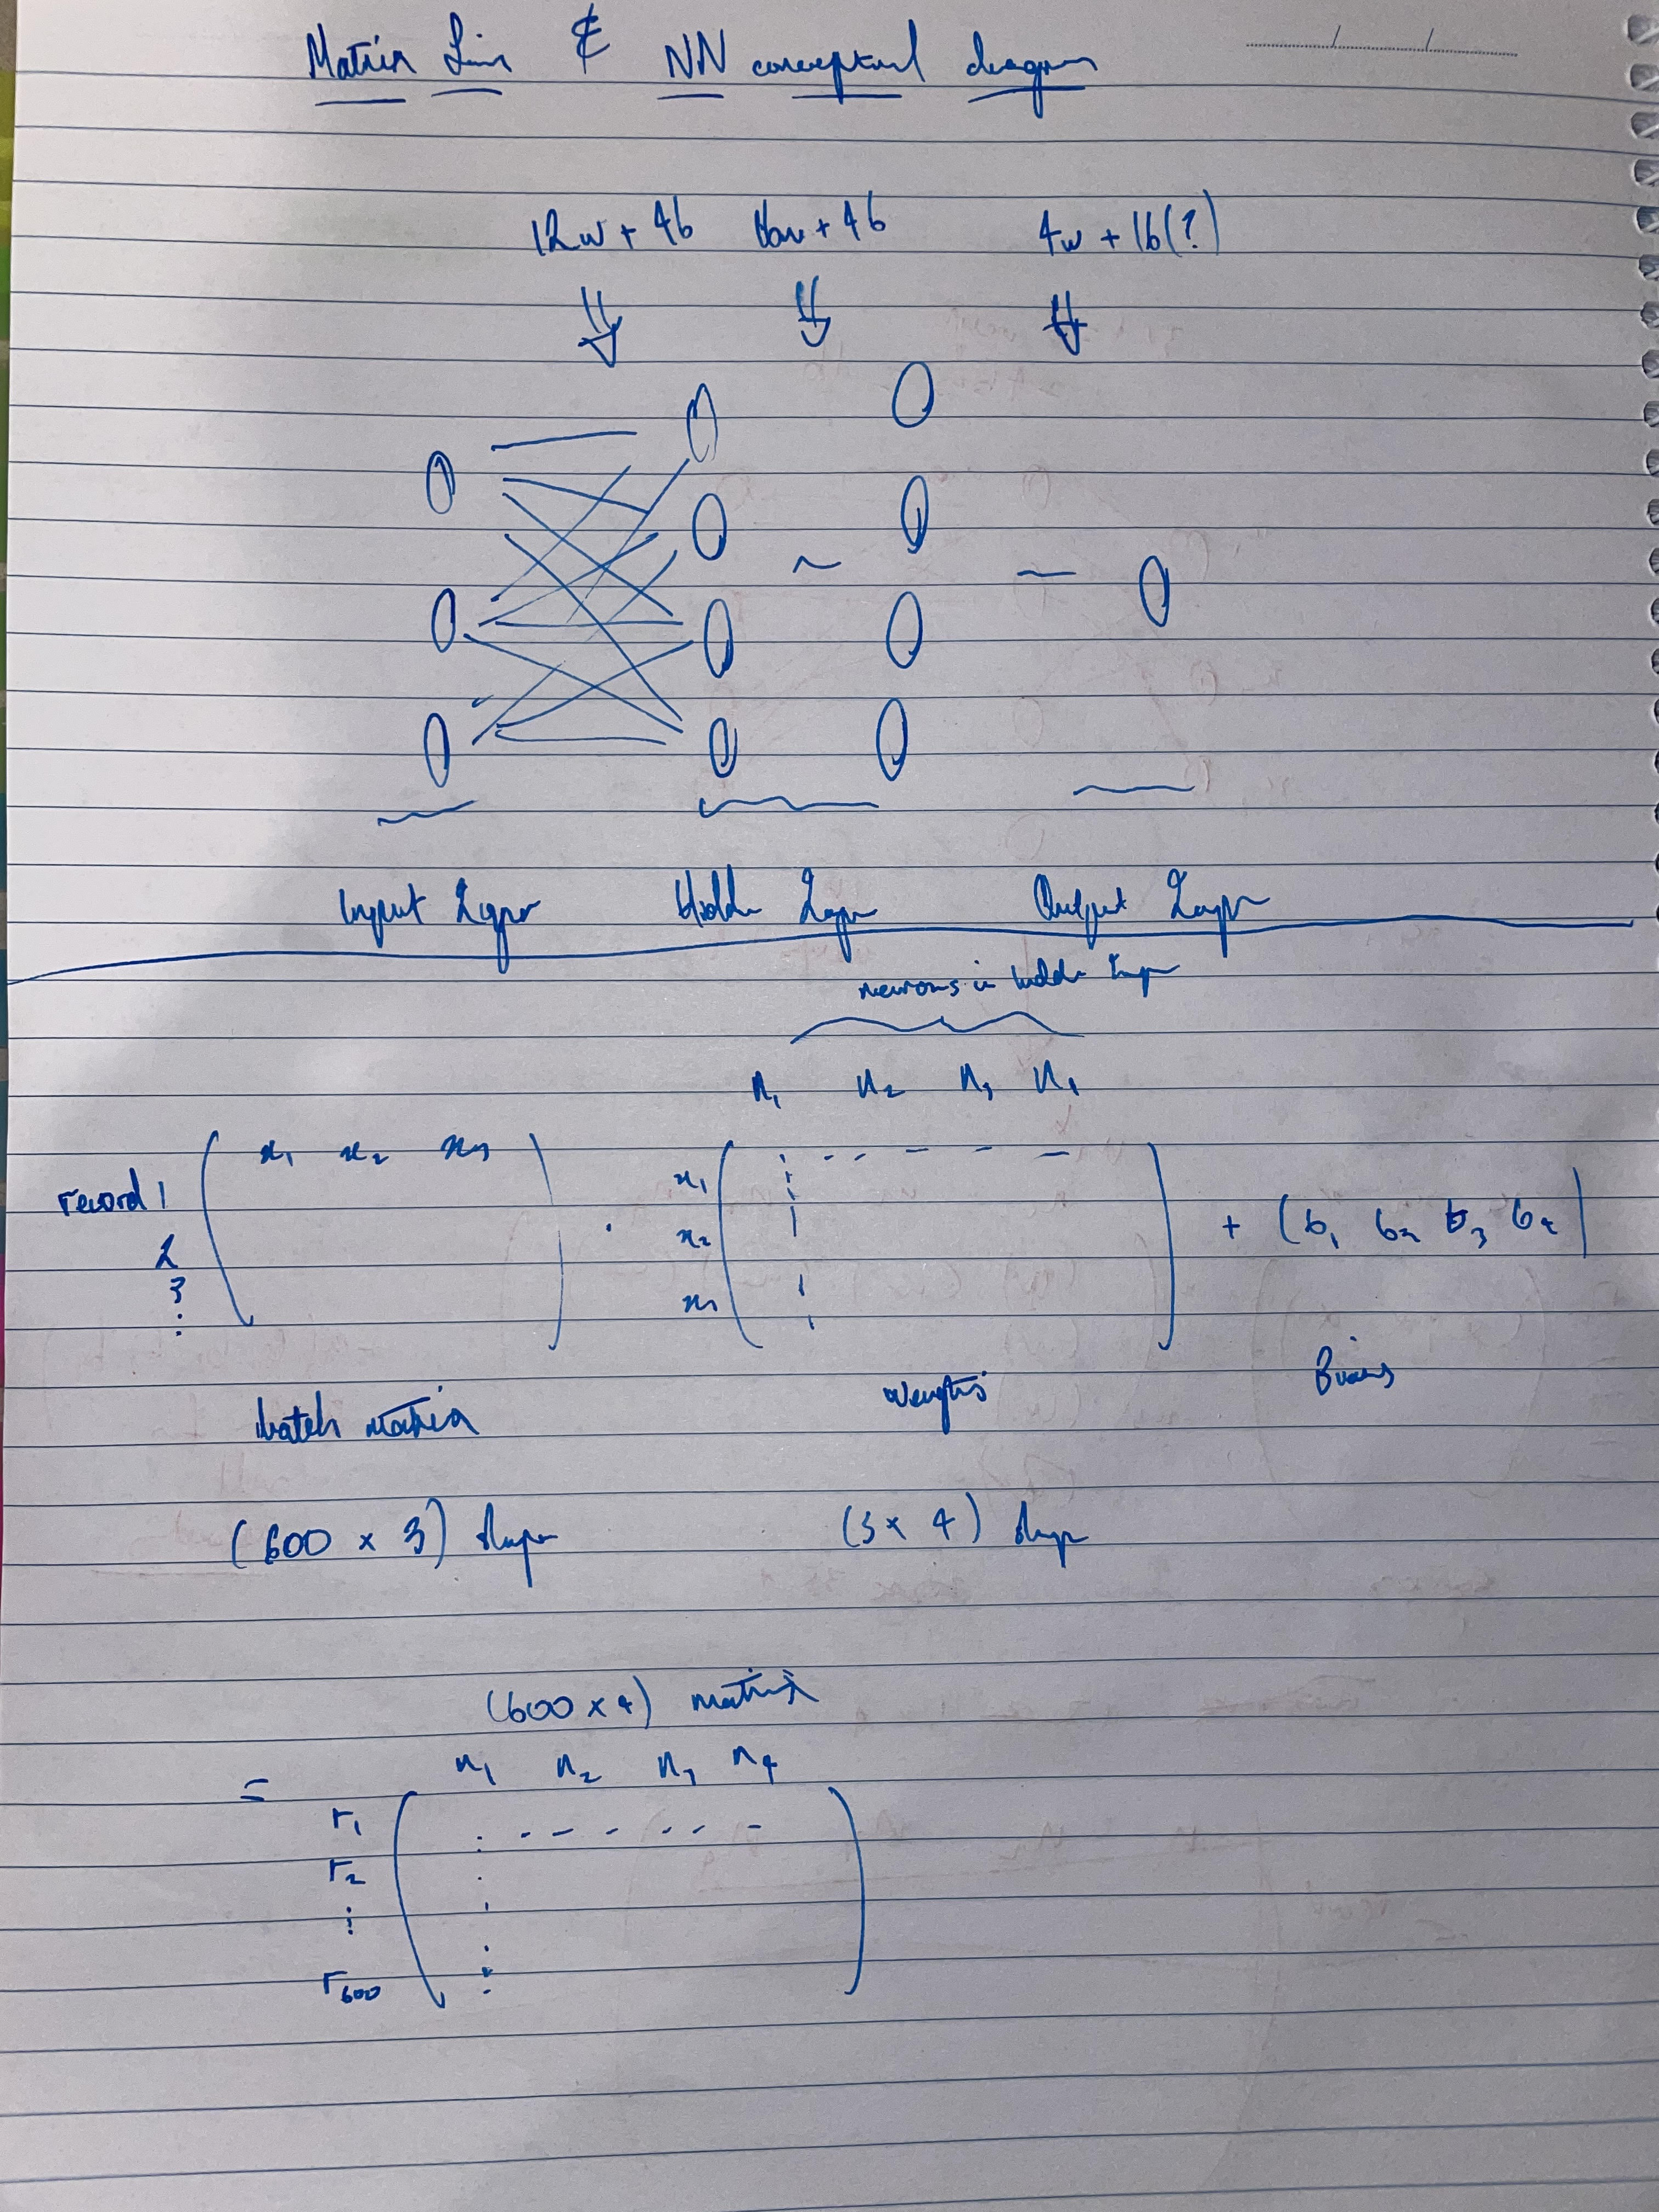 Matrix & NN conceptual diagram
12w + 4b 16w + 4b 4w + 1b(?)
Input Layer Hidden Layer Output Layer
neurons in hidden layer
n₁ n₂ n₃ n₄
x₁ x₂ x₃
record 1 x₁
2 . x₂ + (b₁ b₂ b₃ b₄)
3 x₃
⋮
batch matrix weights Biases
(600 x 3) shape (3 x 4) shape
(600 x 4) matrix
= n₁ n₂ n₃ n₄
r₁
r₂
⋮
r₆₀₀